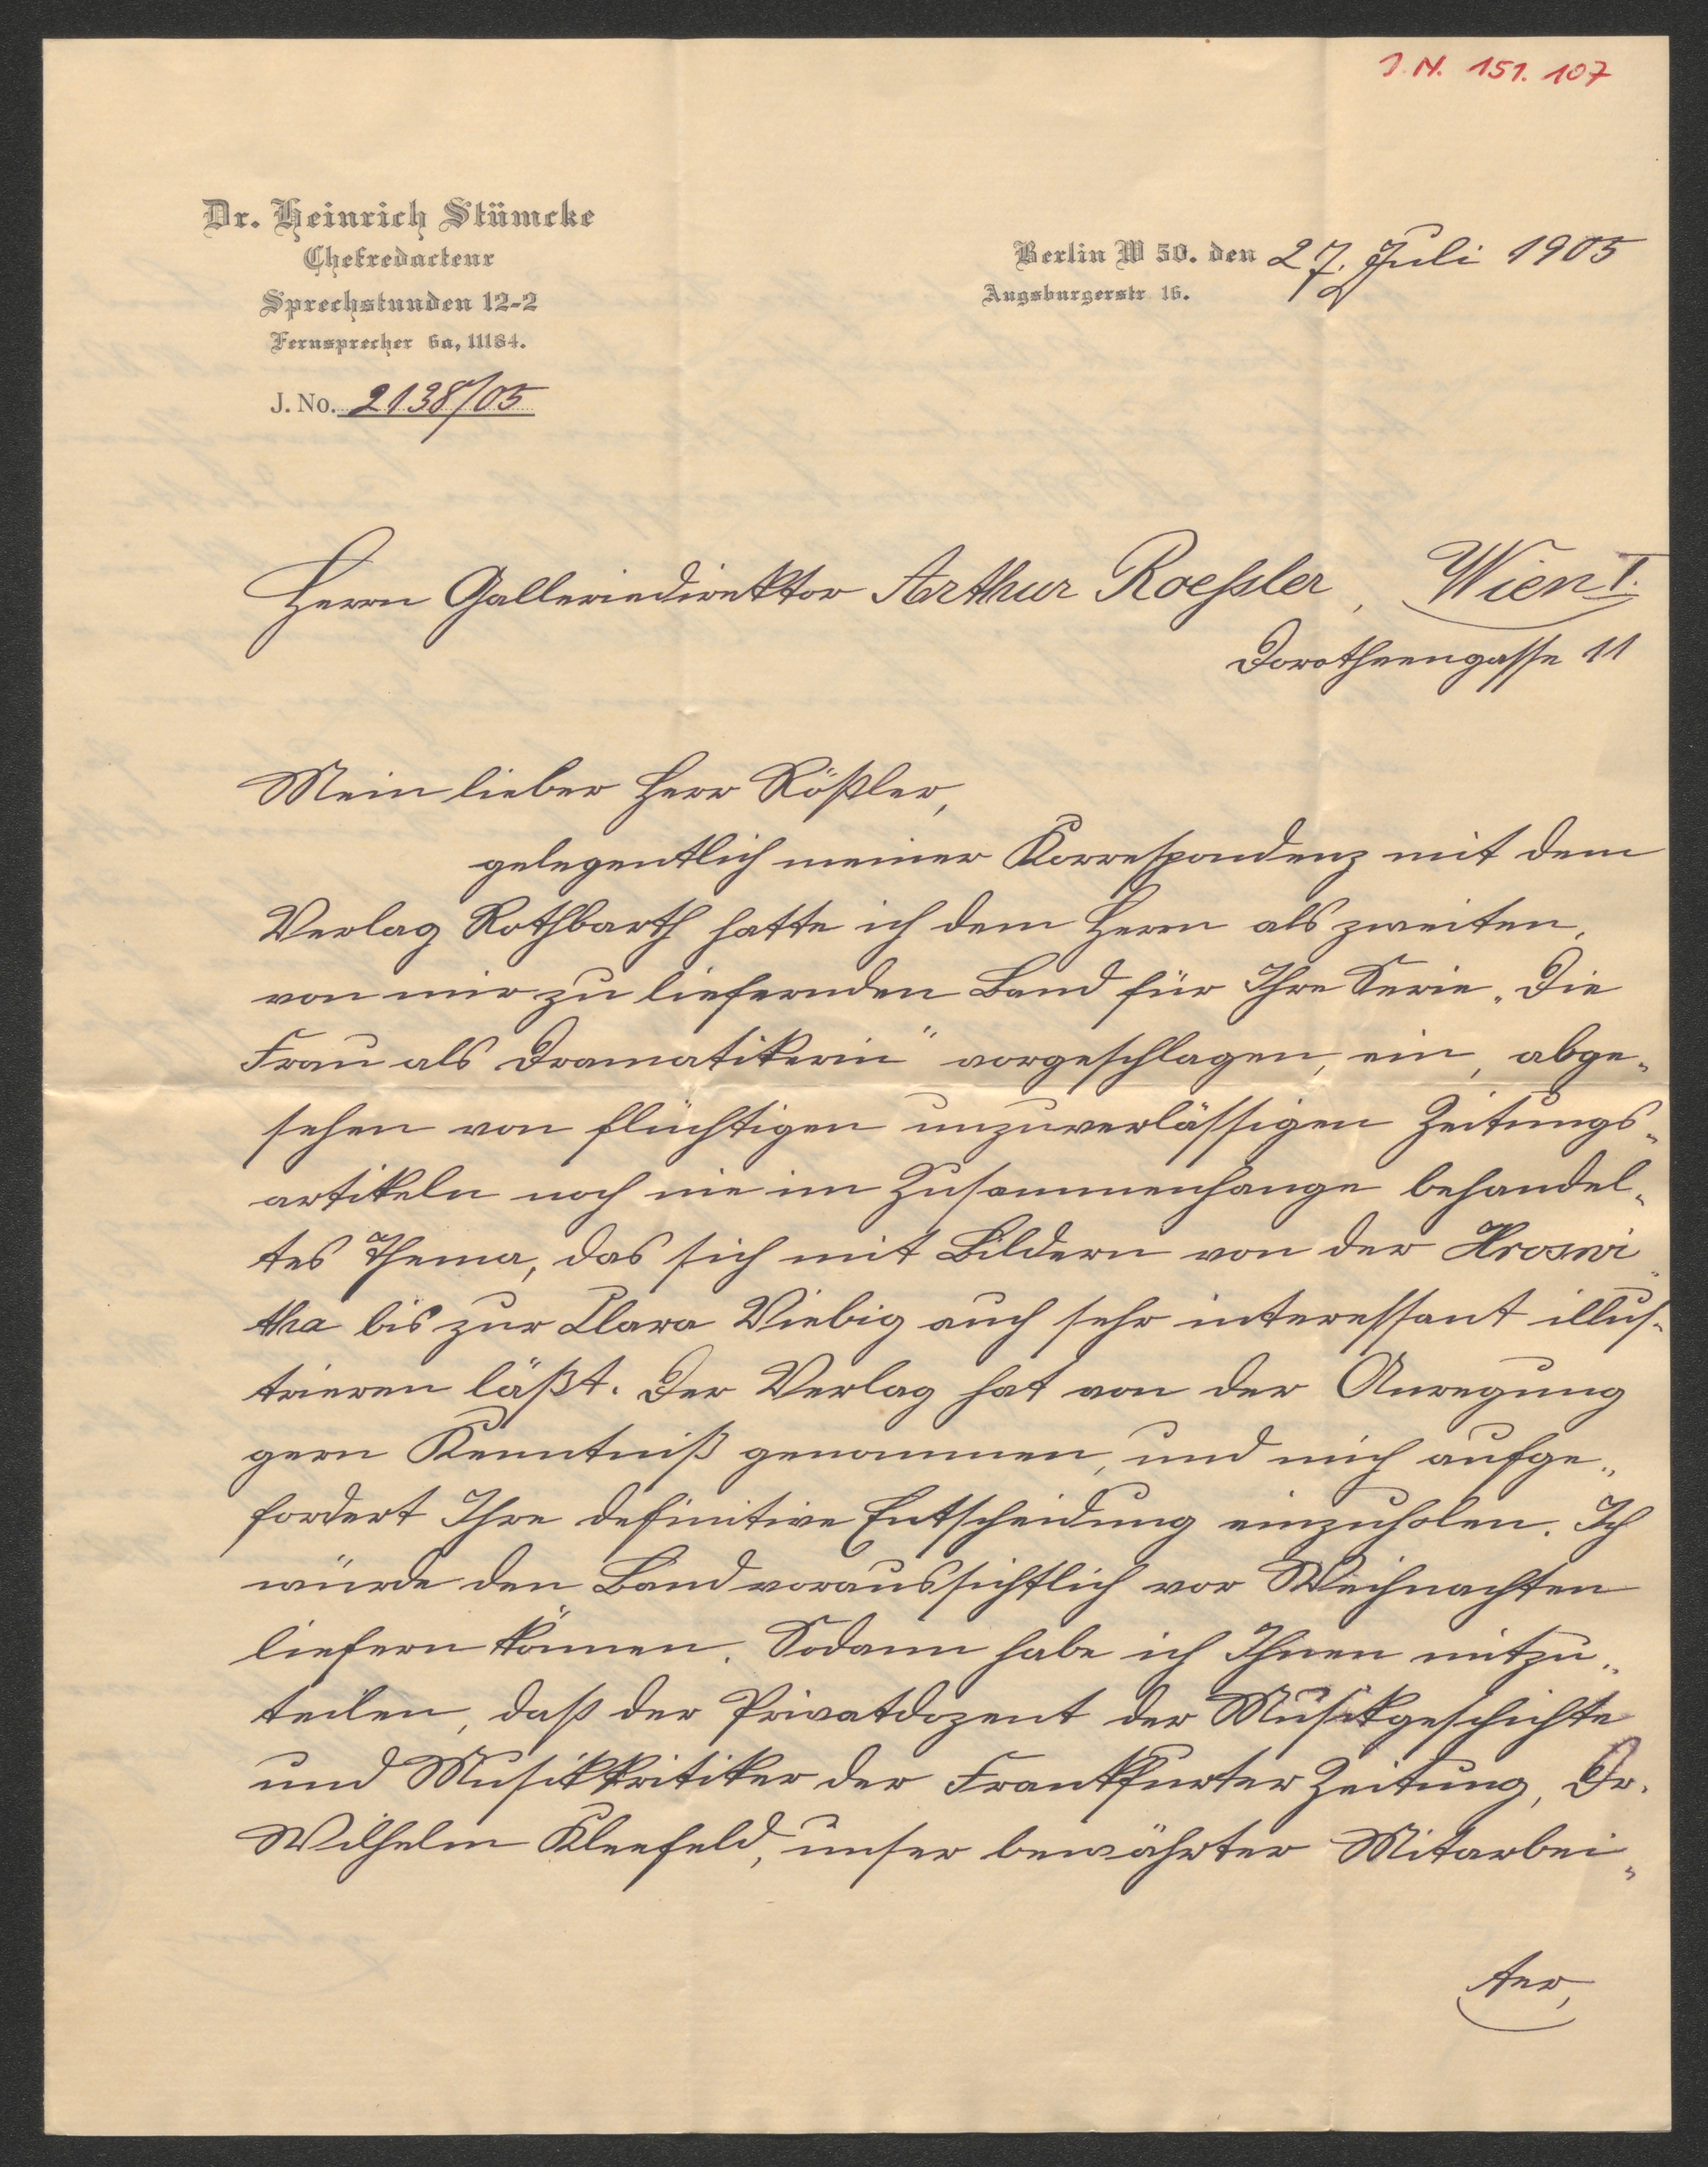 J. N. 151. 107
Dr. Heinrich Stümcke
Chefredacteur
Sprechstunden 12-2
Fernsprecher 6a, 11184.
J. No. 2138/05
Berlin W 50. den 27. Juli 1905
Augsburgerstr 16.
Herrn Galleriedirektor Arthur Roeßler, Wien I.
Dorotheengasse 11
Mein lieber Herr Rößler,
gelegentlich meiner Korrespondenz mit dem
Verlag Rothbarth hatte ich dem Herrn als zweiten,
von mir zu liefernden Band für Ihre Serie „Die
Frau als Dramatikerin" vorgeschlagen, ein, abge-
sehen von flüchtigen unzuverlässigen Zeitungs-
artikeln noch nie im Zusammenhange behandel-
tes Thema, das sich mit Bildern von der Hroswi-
tha bis zur Clara Viebig auch sehr interessant illus-
trieren läßt. Der Verlag hat von der Anregung
gern Kenntniß genommen, und mich aufge-
fordert Ihre definitive Entscheidung einzuholen. Ich
würde den Band voraussichtlich vor Weihnachten
liefern können. Sodann habe ich Ihnen mitzu-
teilen, daß der Privatdozent der Musikgeschichte
und Musikkritiker der Frankfurter Zeitung, Dr.
Wilhelm Kleefeld, unser bewährter Mitarbei-
ter,